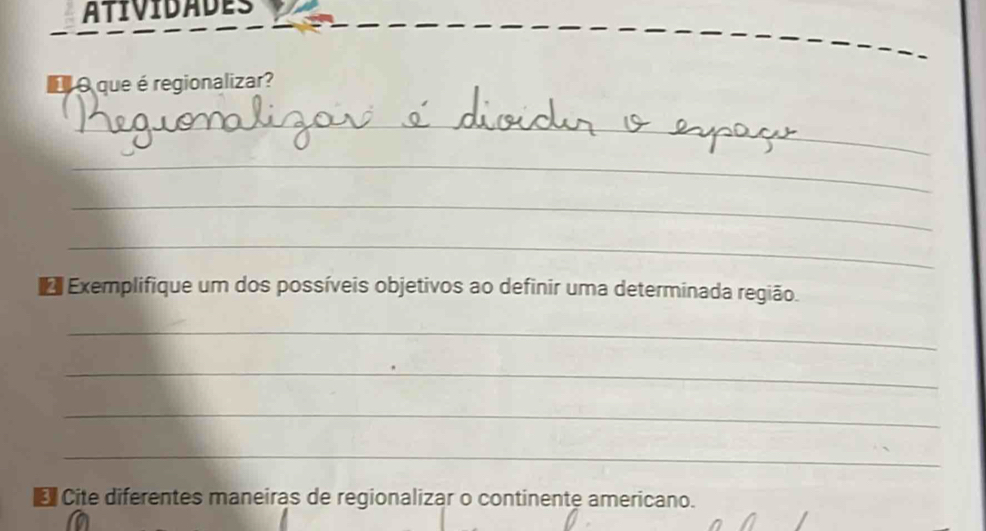 ATIVIDADES
1 O que é regionalizar?
Regionalizar é dividir o espaço
2 Exemplifique um dos possíveis objetivos ao definir uma determinada região.
3 Cite diferentes maneiras de regionalizar o continente americano.